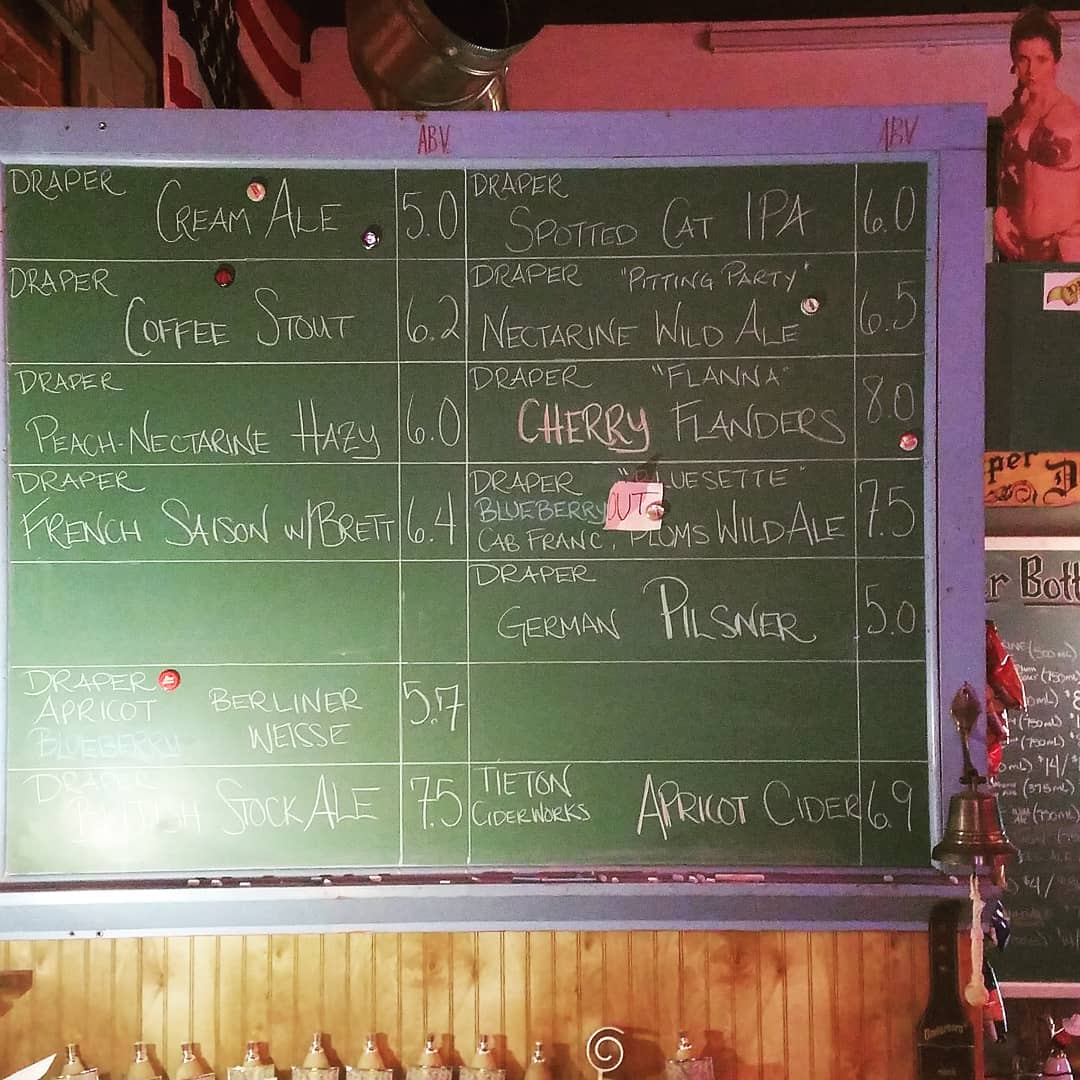 ABV
ABV
DRAPER
CREAM ALE 5.0
DRAPER
SPOTTED CAT IPA 6.0
DRAPER
COFFEE STOUT 6.2
DRAPER "PITTING PARTY"
NECTARINE WILD ALE 6.5
DRAPER
PEACH-NECTARINE HAZY 6.0
DRAPER "FLANNA"
CHERRY FLANDERS 8.0
DRAPER
FRENCH SAISON W/BRETT 6.4
DRAPER
BLUEBERRY OUT
CAB FRANC, PLUMS WILD ALE 7.5
DRAPER
GERMAN PILSNER 5.0
DRAPER
APRICOT BERLINER
BLUEBERRY WEISSE 5.7
DRAPER
STOCK ALE 7.5
TIETON
CIDERWORKS APRICOT CIDER 6.9
per D
r Bott
(500mL)
(750mL
(750mL)
(750mL)
$14/
(375mL)
(750mL)
$4/